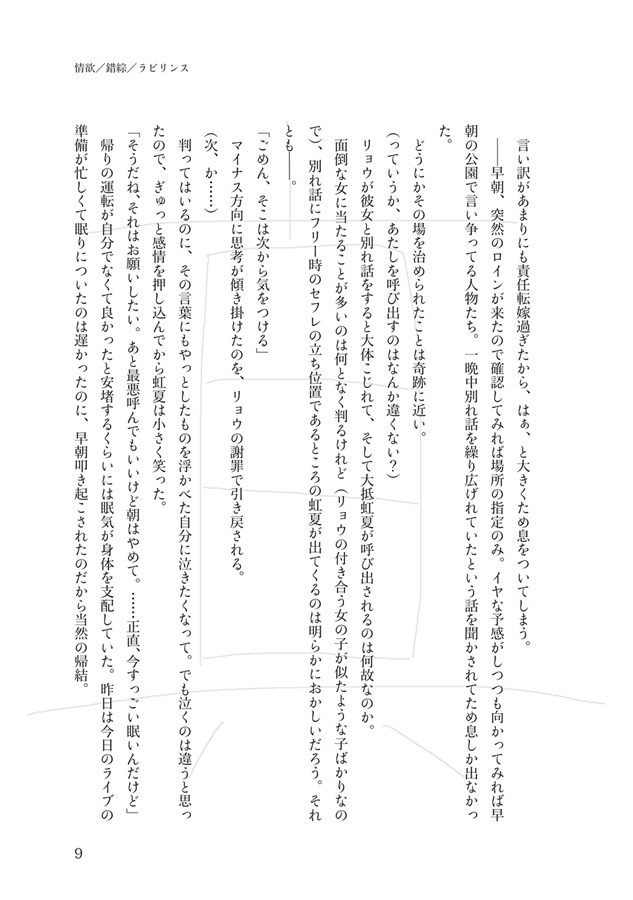 情欲／錯綜／ラビリンス
言い訳があまりにも責任転嫁過ぎたから、はぁ、と大きくため息をついてしまう。
――早朝、突然のロインが来たので確認してみれば場所の指定のみ。イヤな予感がしつつも向かってみれば早
朝の公園で言い争ってる人物たち。一晩中別れ話を繰り広げれていたという話を聞かされてため息しか出なかっ
た。
どうにかその場を治められたことは奇跡に近い。
(っていうか、あたしを呼び出すのはなんか違くない？)
リョウが彼女と別れ話をすると大体こじれて、そして大抵虹夏が呼び出されるのは何故なのか。
面倒な女に当たることが多いのは何となく判るけれど（リョウの付き合う女の子が似たような子ばかりなの
で）、別れ話にフリー時のセフレの立ち位置であるところの虹夏が出てくるのは明らかにおかしいだろう。それ
とも――。
「ごめん、そこは次から気をつける」
マイナス方向に思考が傾き掛けたのを、リョウの謝罪で引き戻される。
(次、か……)
判ってはいるのに、その言葉にもやっとしたものを浮かべた自分に泣きたくなって。でも泣くのは違うと思っ
たので、ぎゅっと感情を押し込んでから虹夏は小さく笑った。
「そうだね、それはお願いしたい。あと最悪呼んでもいいけど朝はやめて。……正直、今すっごい眠いんだけど」
帰りの運転が自分でなくて良かったと安堵するくらいには眠気が身体を支配していた。昨日は今日のライブの
準備が忙しくて眠りについたのは遅かったのに、早朝叩き起こされたのだから当然の帰結。
9